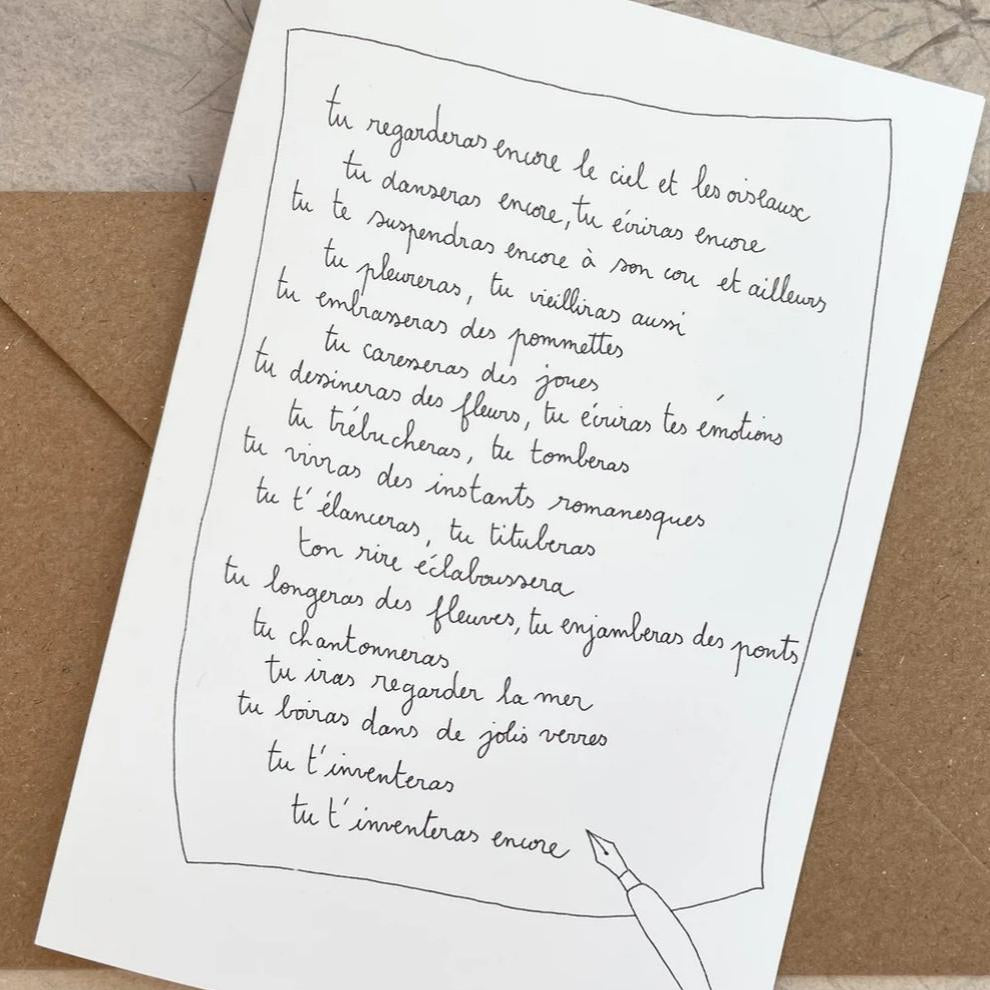 tu regarderas encore le ciel et les oiseaux
tu danseras encore, tu écriras encore
tu te suspendras encore à son cou et ailleurs
tu pleureras, tu vieilliras aussi
tu embrasseras des pommettes
tu caresseras des joues
tu dessineras des fleurs, tu écriras tes émotions
tu trébucheras, tu tomberas
tu vivras des instants romanesques
tu t'élanceras, tu tituberas
ton rire éclaboussera
tu longeras des fleuves, tu enjamberas des ponts
tu chantonneras
tu iras regarder la mer
tu boiras dans de jolis verres
tu t'inventeras
tu t'inventeras encore